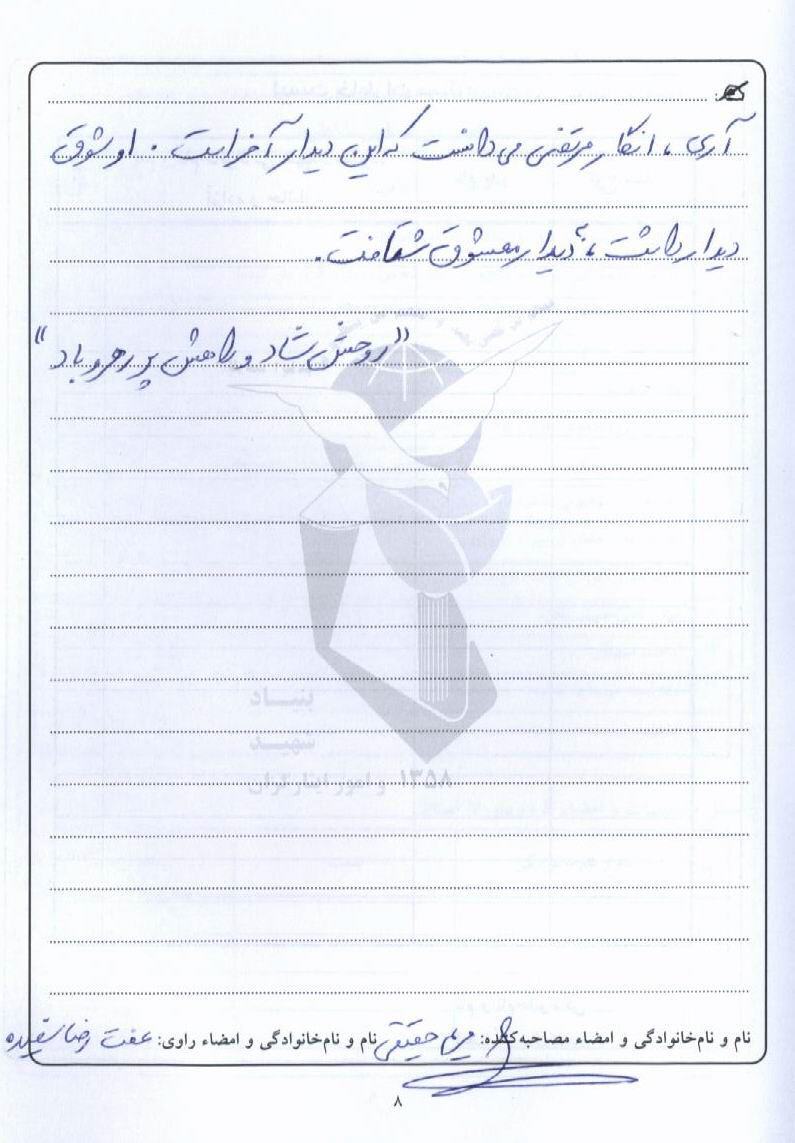 آری، انگار مرتضی می دانست که این دیدار آخر است. او شوق
دیدار داشت، دیدار معشوق شتافت.
"روحش شاد و راهش پر رهرو باد"
بنیاد
شهید
و امور ایثارگران ۱۳۵۸
نام و نام‌خانوادگی و امضاء مصاحبه‌کننده: مریم حقیقی نام و نام‌خانوادگی و امضاء راوی: عفت رضا
۸